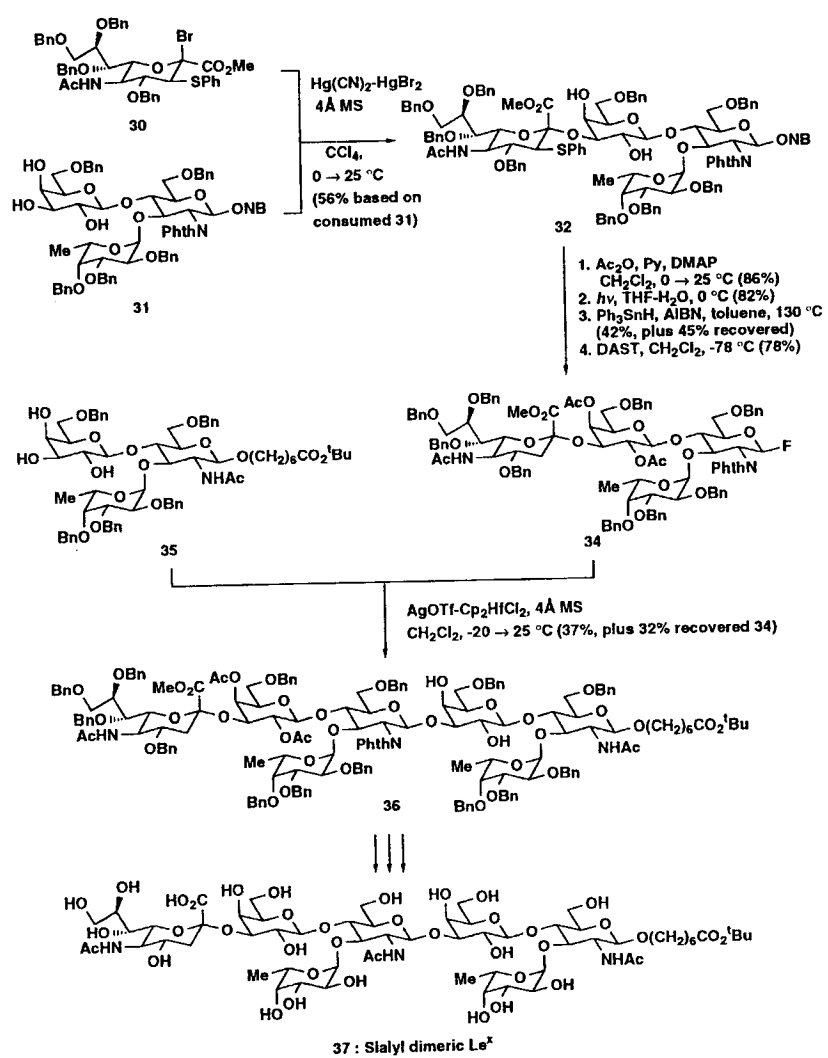 OBn
BnO
Br
O
CO₂Me
BnO
AcHN
SPh
OBn
30
HO
OBn
OBn
HO
O
O
O
ONB
OH
O
PhthN
Me
O
OBn
BnO
OBn
31
Hg(CN)₂-HgBr₂
4Å MS
CCl₄,
0 → 25 °C
(56% based on
consumed 31)
OBn
BnO
MeO₂C
HO
OBn
OBn
BnO
O
O
O
O
O
ONB
AcHN
SPh
OH
O
PhthN
OBn
Me
O
OBn
BnO
OBn
32
1. Ac₂O, Py, DMAP
CH₂Cl₂, 0 → 25 °C (86%)
2. hν, THF-H₂O, 0 °C (82%)
3. Ph₃SnH, AIBN, toluene, 130 °C
(42%, plus 45% recovered)
4. DAST, CH₂Cl₂, -78 °C (78%)
HO
OBn
OBn
HO
O
O
O
O(CH₂)₆CO₂ᵗBu
OH
O
NHAc
Me
O
OBn
BnO
OBn
35
OBn
BnO
MeO₂C
AcO
OBn
OBn
BnO
O
O
O
O
O
F
AcHN
OAc
O
PhthN
OBn
Me
O
OBn
BnO
OBn
34
AgOTf-Cp₂HfCl₂, 4Å MS
CH₂Cl₂, -20 → 25 °C (37%, plus 32% recovered 34)
OBn
BnO
MeO₂C
AcO
OBn
OBn
HO
OBn
OBn
BnO
O
O
O
O
O
O
O
O
O
O(CH₂)₆CO₂ᵗBu
AcHN
OAc
O
PhthN
OH
O
NHAc
OBn
Me
O
OBn
Me
O
OBn
BnO
OBn
BnO
OBn
36
OH
HO
HO₂C
HO
OH
OH
HO
OH
OH
HO
O
O
O
O
O
O
O
O
O
O(CH₂)₆CO₂ᵗBu
AcHN
OH
O
AcHN
OH
O
NHAc
OH
Me
O
OH
Me
O
OH
HO
OH
HO
OH
37 : Sialyl dimeric Leˣ